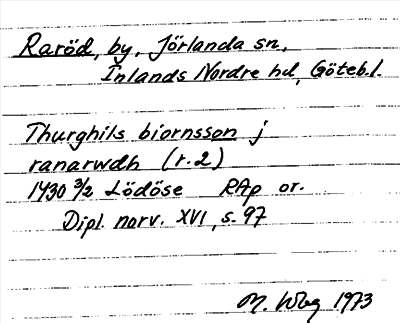 Raröd, by, Jörlanda sn,
Inlands Nordre hd, Göteb.l.
Thurghils biornsson j
ranarwdh (r.2)
1430 3/2 Lödöse RAp or.
Dipl. norv. XVI, s. 97
M. Wag 1973